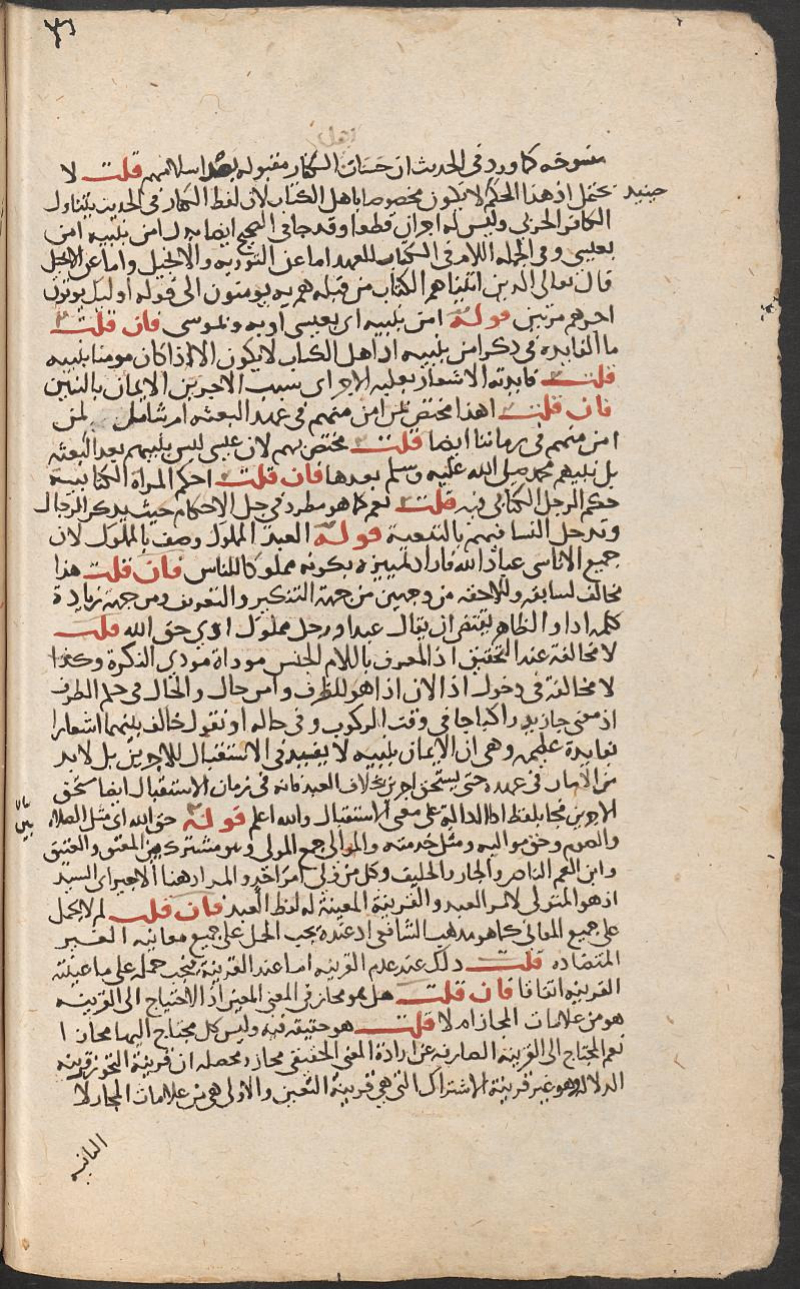 منسوخة كما ورد في الحديث ان حسنات الكفار مقبوله بعد اسلامهم قلت لا
حينيد
يحتمل اذ هذا الحكم لا يكون مخصوصا باهل الكتاب لان لفظ الكفار في الحديث يتناول
الكافر الحربي وليس له اجران قطعا وقد جا في الصحيح ايضا بدل امن بنبيه امن
بعيسى وفي الجمله اللام في الكتاب للعهد اما عن التوريه والانجيل واما عن الانجيل
قال تعالى الذين اتيناهم الكتاب من قبله هم به يومنون الى قوله اوليك يوتون
اجرهم مرتين قوله امن بنبيه اي بعيسى او به وبموسى فان قلت
ما الفايده في ذكر امن بنبيه اذ اهل الكتاب لا يكون الا اذا كان مومنا بنبيه
قلت فايدته الاشعار بعليه الاجر اي سبب الاجرين الايمان بالنبين
فان قلت اهذا مختص بمن امن منهم في عهد البعثه ام شامل لمن
امن منهم في زماننا ايضا قلت مختص بهم لان عيسى ليس بنبيهم بعد البعثه
بل نبيهم محمد صلى الله عليه وسلم بعدها فان قلت احكم المراة الكتابية
حكم الرجل الكتابي فيه قلت نعم كما هو مطرد في جل الاحكام حيث يذكر الرجال
وتدخل النسا فيهم بالتبعية قوله العبد المملوك وصف بالمملوك لان
جميع الاناسي عباد الله فاراد تمييزه بكونه مملوكا للناس فان قلت هذا
مخالف لسابقه وللاحقه من وجهين من جهة التنكير والتعريف ومن جهة زيادة
كلمه اذا والظاهر يقتضي ان يقال عبد او رجل مملوك ادي حق الله قلت
لا مخالفة عند التحقيق اذ المعرف باللام الجنس موداة مودي النكرة وكذا
لا مخالفة في دخول اذا لان اذا هو للظرف وامن حال والحال في حكم الظرف
اذ معنى جا زيد راكبا جا في وقت الركوب وفي حاله او نقول خالف بينهما اشعارا
بفايدة عظيمه وهي ان الايمان بنبيه لا يفيد في الاستقبال للاجرين بل لا بد
من الايمان في عهده حتى يستحق اجرين بخلاف العبد فانه في زمان الاستقبال ايضا يستحق
الاجرين فجا بلفظ اذا الدالة على معنى الاستقبال والله اعلم قوله حق الله اي مثل الصلاة
والصوم وحق مواليه ومثل خدمته والموالي جمع المولى وهو مشترك بين المعتق والعتيق
بيان
وابن العم الناصر والجار والحليف وكل من ولي امر اخر والمراد هنا الاخير اي السيد
اذ هو المتولي لامر العبد والقرينة المعينة له لفظ العبد فان قلت لم لا يحمل
على جميع المعاني كما هو مذهب الشافعي اذ عنده يجب الحمل على جميع معانيه الغير
المتضاده قلت ذلك عند عدم القرينه اما عند القرينة فيجب حمله على ما عينته
القرينه اتفاقا فان قلت هل هو مجاز في المعنى المعين اذ الاحتياج الى القرينه
هو من علامات المجاز ام لا قلت هو حقيقه فيه وليس كل محتاج اليها مجازا
نعم المحتاج الى القرينة الصارفه عن ارادة المعنى الحقيقي مجاز ومحصله ان قرينة التجوز قرينه
الدلالة وهو غير قرينة الاشتراك التي هي قرينة التعيين والاولى هي من علامات المجاز لا
الثانيه